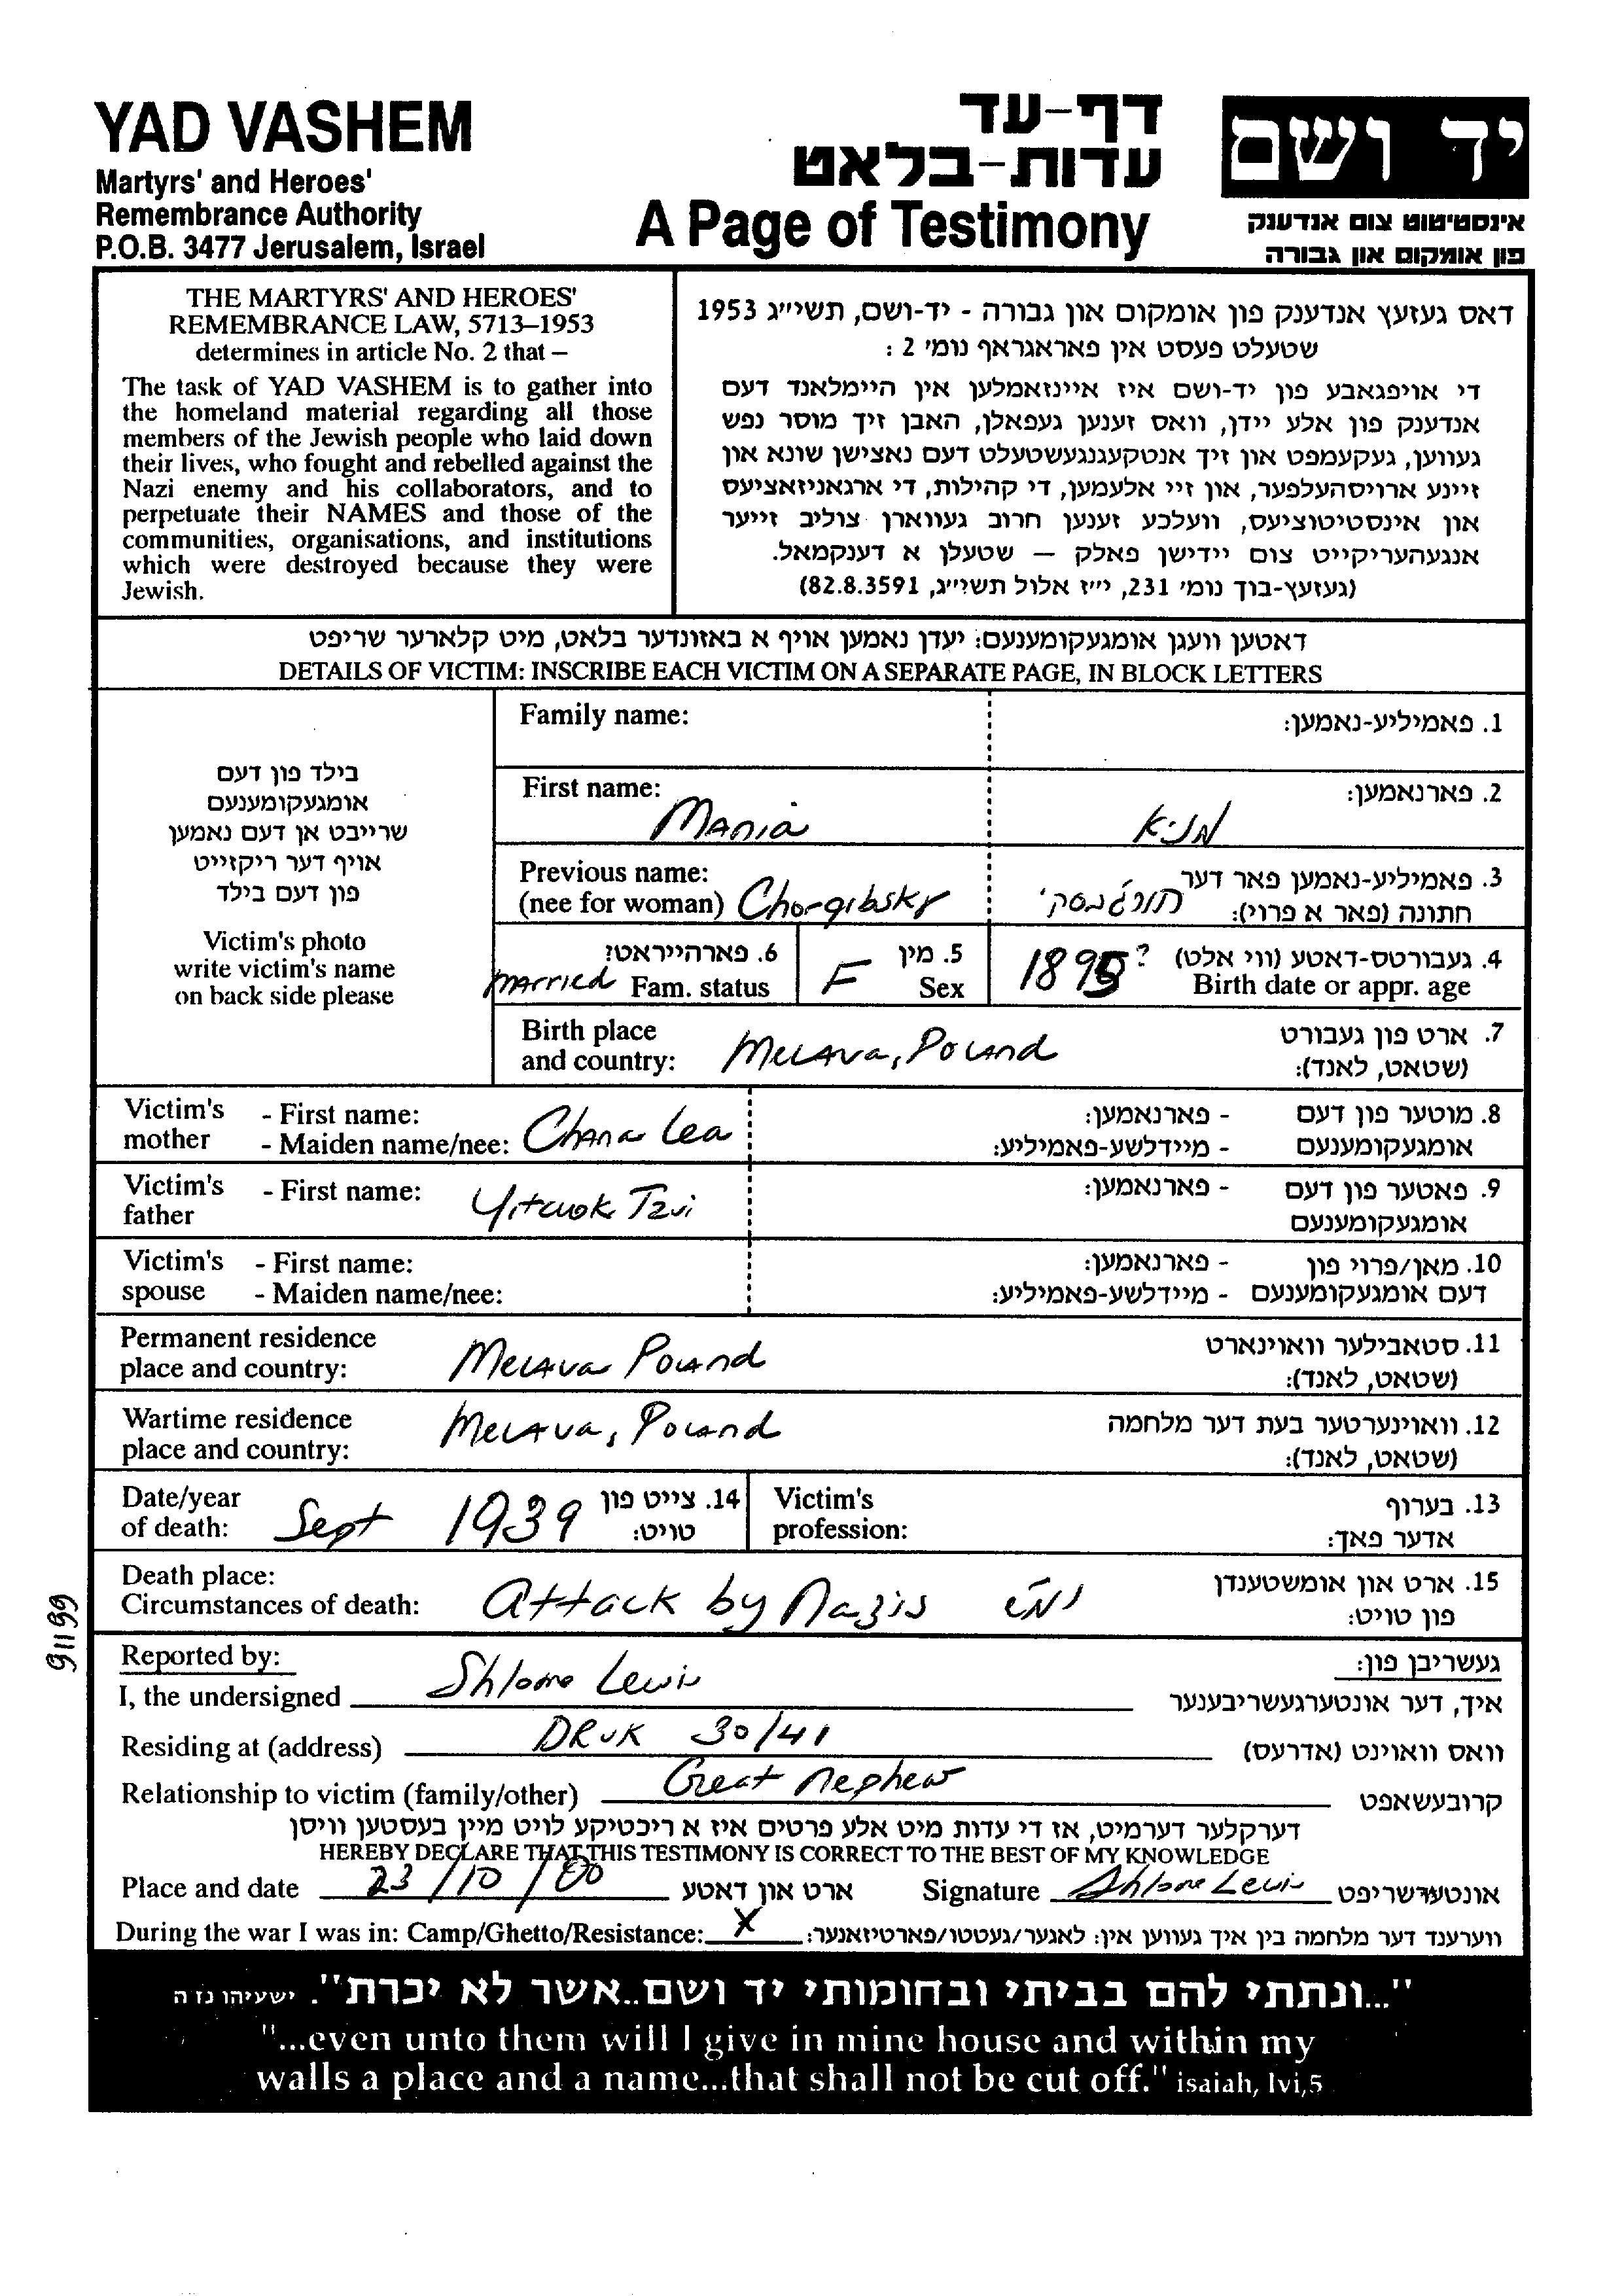 YAD VASHEM
Martyrs' and Heroes'
Remembrance Authority
P.O.B. 3477 Jerusalem, Israel
דף-עד
עדות-בלאט
A Page of Testimony
יד ושם
אינסטיטוט צום אנדענק
פון אומקום און גבורה
THE MARTYRS' AND HEROES'
REMEMBRANCE LAW, 5713–1953
determines in article No. 2 that –
The task of YAD VASHEM is to gather into
the homeland material regarding all those
members of the Jewish people who laid down
their lives, who fought and rebelled against the
Nazi enemy and his collaborators, and to
perpetuate their NAMES and those of the
communities, organisations, and institutions
which were destroyed because they were
Jewish.
דאס געזעץ אנדענק פון אומקום און גבורה - יד-ושם, תשי״ג 1953
שטעלט פעסט אין פאראגראף נומ׳ 2 :
די אויפגאבע פון יד-ושם איז איינזאמלען אין היימלאנד דעם
אנדענק פון אלע יידן, וואס זענען געפאלן, האבן זיך מוסר נפש
געווען, געקעמפט און זיך אנטקעגנגעשטעלט דעם נאצישן שונא און
זיינע ארויסהעלפער, און זיי אלעמען, די קהילות, די ארגאניזאציעס
און אינסטיטוציעס, וועלכע זענען חרוב געווארן צוליב זייער
אנגעהעריקייט צום יידישן פאלק – שטעלן א דענקמאל.
(געזעץ-בוך נומ׳ 231, י״ז אלול תשי״ג, 82.8.3591)
דאטען וועגן אומגעקומענעם: יעדן נאמען אויף א באזונדער בלאט, מיט קלארער שריפט
DETAILS OF VICTIM: INSCRIBE EACH VICTIM ON A SEPARATE PAGE, IN BLOCK LETTERS
בילד פון דעם
אומגעקומענעם
שרייבט אן דעם נאמען
אויף דער ריקזייט
פון דעם בילד
Victim's photo
write victim's name
on back side please
Family name: 1. פאמיליע-נאמען:
First name: Mania מניא 2. פארנאמען:
Previous name: 3. פאמיליע-נאמען פאר דער
(nee for woman) Chorgibsky חתונה (פאר א פרוי):
6. פארהייראט? 5. מין 4. געבורטס-דאטע (ווי אלט)
married Fam. status F Sex 1895? Birth date or appr. age
Birth place 7. ארט פון געבורט
and country: Melava, Poland (שטאט, לאנד):
Victim's - First name: - פארנאמען: 8. מוטער פון דעם
mother - Maiden name/nee: Chana Lea - מיידלשע-פאמיליע: אומגעקומענעם
Victim's - First name: Yitchok Tzvi - פארנאמען: 9. פאטער פון דעם
father אומגעקומענעם
Victim's - First name: - פארנאמען: 10. מאן/פרוי פון
spouse - Maiden name/nee: - מיידלשע-פאמיליע: דעם אומגעקומענעם
Permanent residence 11. סטאבילער וואוינארט
place and country: Melava Poland (שטאט, לאנד):
Wartime residence 12. וואוינערטער בעת דער מלחמה
place and country: Melava, Poland (שטאט, לאנד):
Date/year 14. צייט פון Victim's 13. בערוף
of death: Sept 1939 טויט: profession: אדער פאך:
Death place: 15. ארט און אומשטענדן
Circumstances of death: Attack by Nazis פון טויט:
91199
Reported by: געשריבן פון:
I, the undersigned Shlome Lewis איך, דער אונטערגעשריבענער
Residing at (address) DRUK 30/41 וואס וואוינט (אדרעס)
Relationship to victim (family/other) Great nephew קרובעשאפט
דערקלער דערמיט, אז די עדות מיט אלע פרטים איז א ריכטיקע לויט מיין בעסטען וויסן
HEREBY DECLARE THAT THIS TESTIMONY IS CORRECT TO THE BEST OF MY KNOWLEDGE
Place and date 23/10/00 ארט און דאטע Signature Shlome Lewis אונטערשריפט
During the war I was in: Camp/Ghetto/Resistance: X ווערענד דער מלחמה בין איך געווען אין: לאגער/געטטו/פארטיזאנער:
"...ונתתי להם בביתי ובחומותי יד ושם..אשר לא יכרת". ישעיהו נז ה
"...even unto them will I give in mine house and within my
walls a place and a name...that shall not be cut off." isaiah, lvi,5